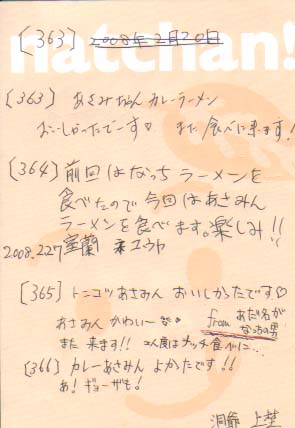 natchan!
[363] 2008年2月20日
[363] あさみちゃん カレーラーメン
おいしかったでーす♡ また食べに来ます!
[364] 前回はなっちラーメンを
食べたので今回はあさみん
ラーメンを食べます。楽しみ!!
2008.2.27 室蘭
[365] トンコツあさみん おいしかったです♡
あさみん かわいーな。
from あだ名が
なっちの男
また来ます!! 次はナッチ食べに…
[366] カレーあさみん よかったです!!
あ!ギョーザも!